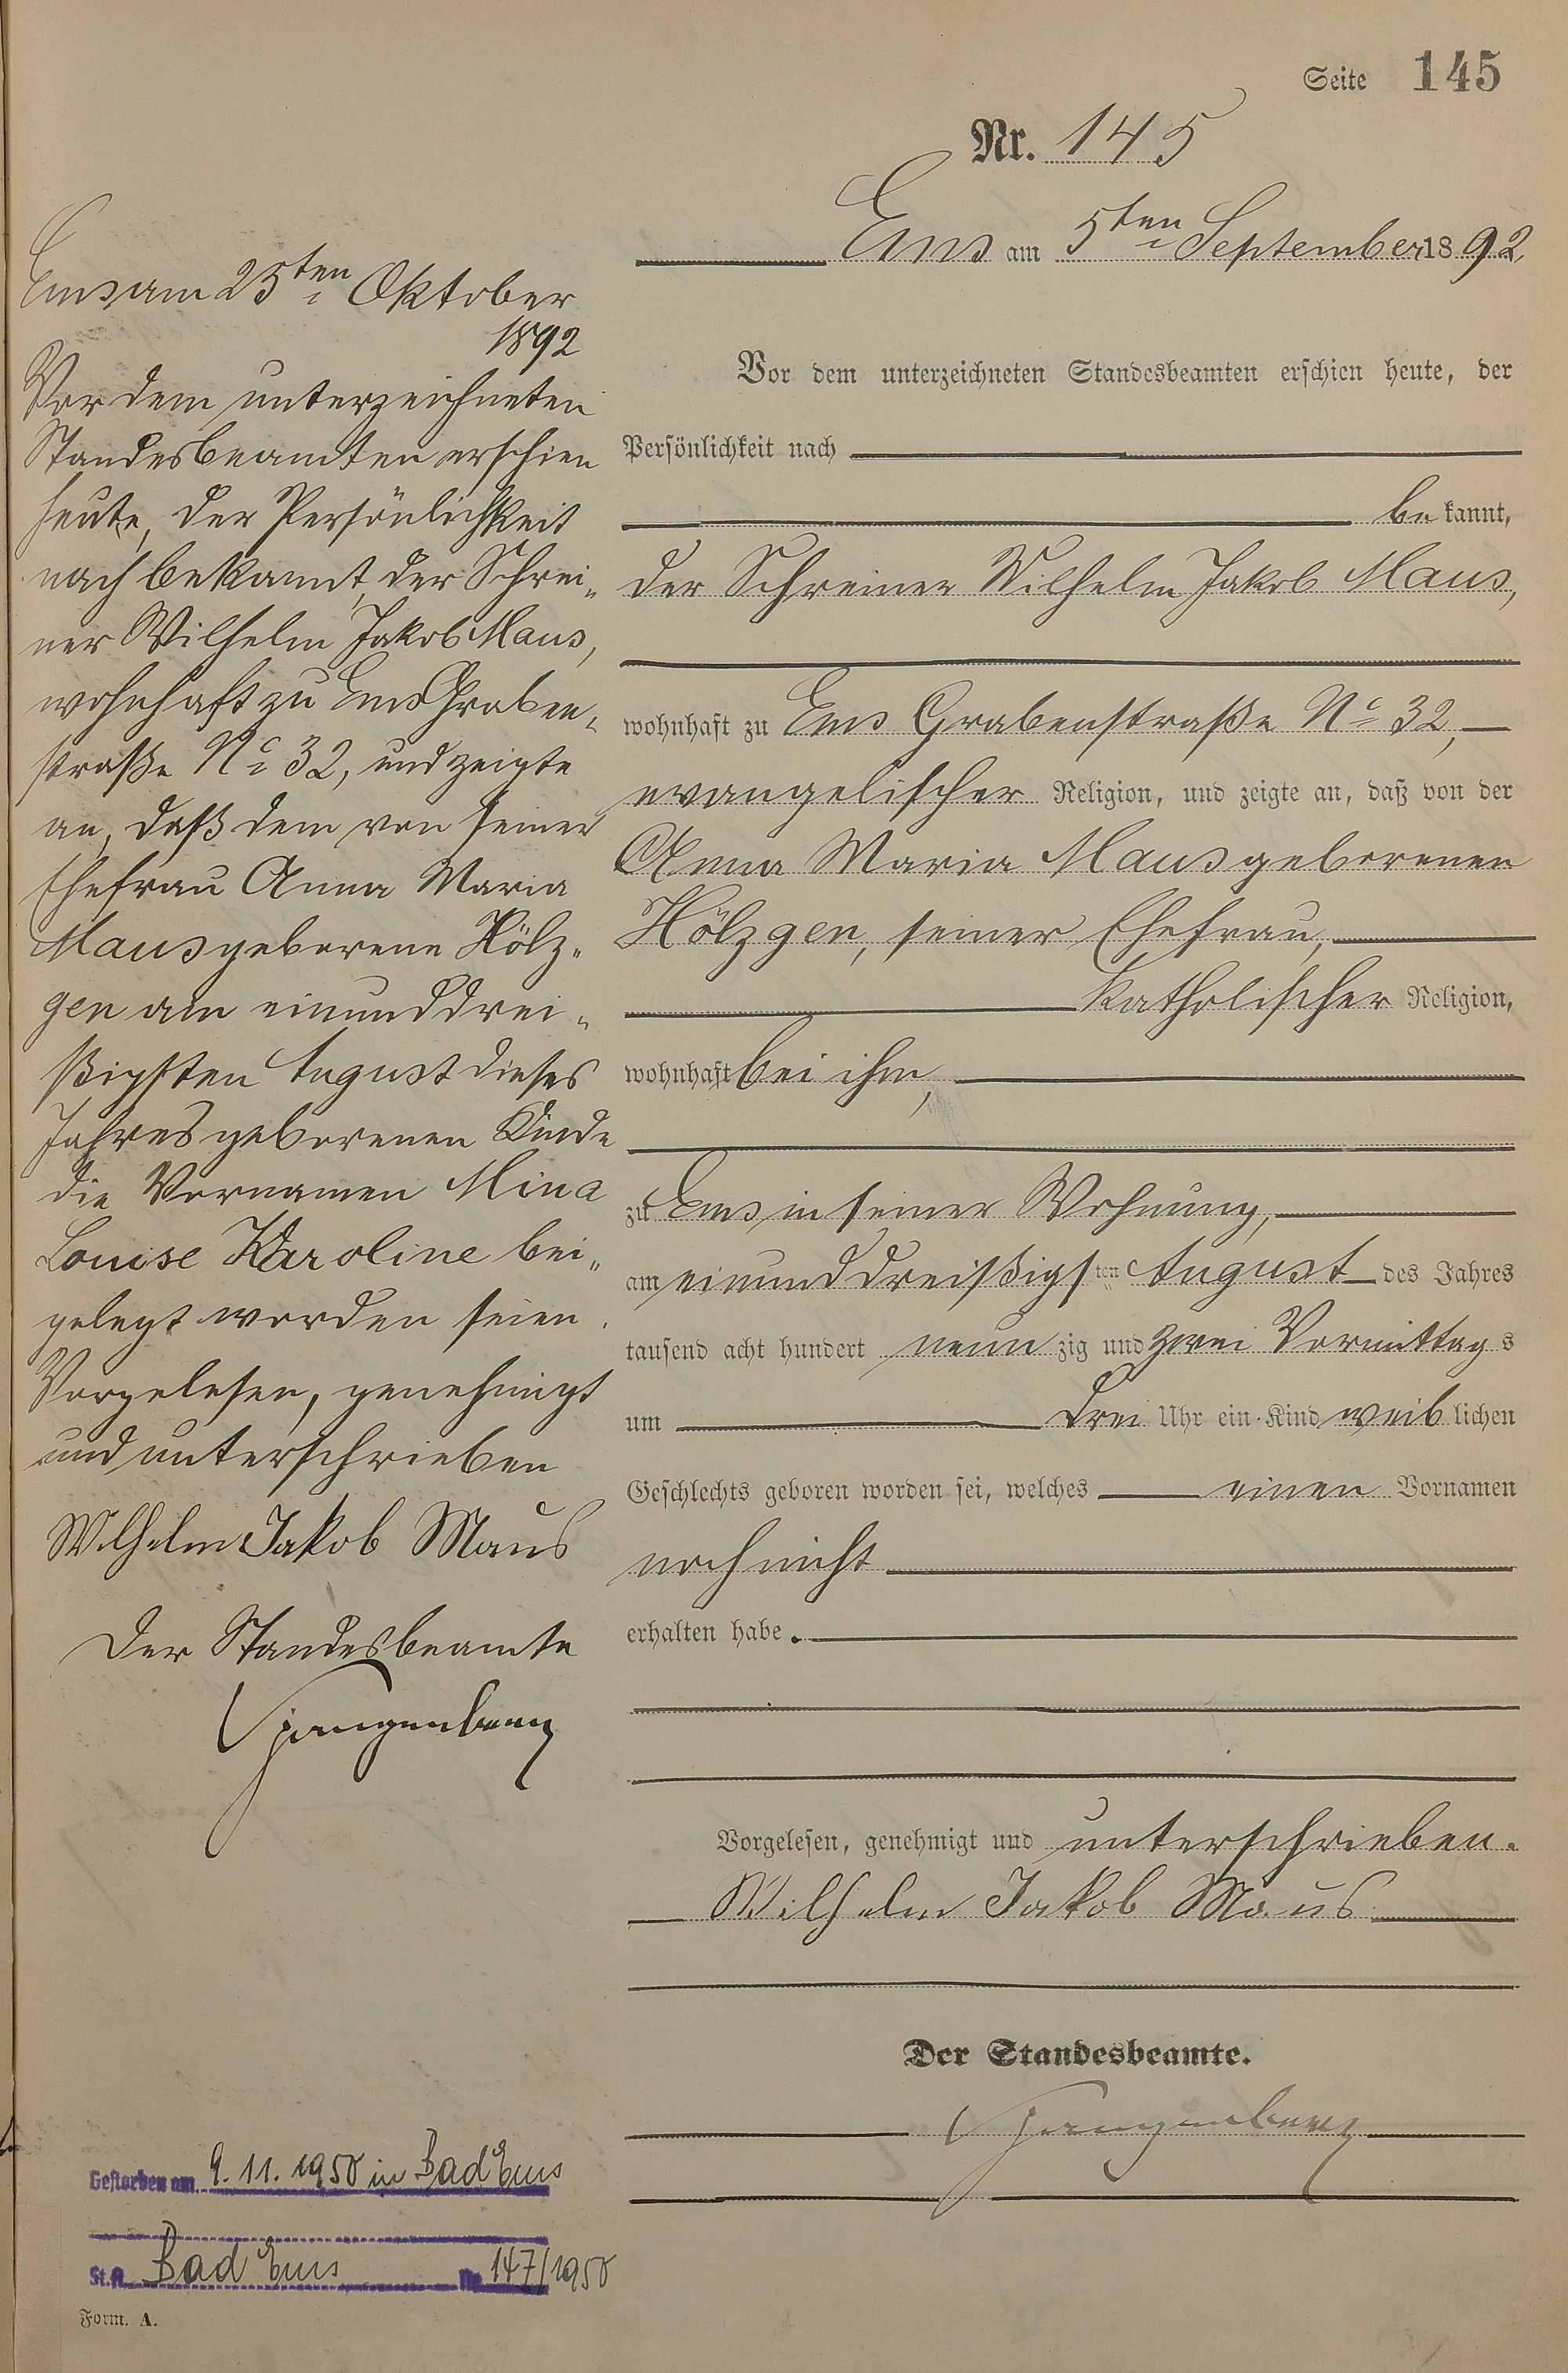 Seite 145
Nr. 145
Ems am 5ten September 1892.
Vor dem unterzeichneten Standesbeamten erschien heute, der
Persönlichkeit nach
be kannt,
der Schreiner Wilhelm Jakob Maus,
wohnhaft zu Ems Grabenstraße No 32,
evangelischer Religion, und zeigte an, daß von der
Anna Maria Maus geborenen
Hölzgen, seiner Ehefrau,
katholischer Religion,
wohnhaft bei ihm,
zu Ems in seiner Wohnung,
am einunddreißigsten August des Jahres
tausend acht hundert neun zig und zwei Vormittags
um drei Uhr ein Kind weib lichen
Geschlechts geboren worden sei, welches einen Vornamen
noch nicht
erhalten habe.
Vorgelesen, genehmigt und unterschrieben.
Wilhelm Jakob Maus
Der Standesbeamte.
Spangenberg
Ems am 25ten Oktober
1892
Vor dem unterzeichneten
Standesbeamten erschien
heute, der Persönlichkeit
nach bekannt, der Schrei-
ner Wilhelm Jakob Maus,
wohnhaft zu Ems Graben-
straße No 32, und zeigte
an, daß dem von seiner
Ehefrau Anna Maria
Maus geborene Hölz-
gen am einunddrei-
ßigsten August dieses
Jahres geborenen Kinde
die Vornamen Mina
Louise Karoline bei-
gelegt worden seien.
Vorgelesen, genehmigt
und unterschrieben
Wilhelm Jakob Maus
Der Standesbeamte
Spangenberg
Gestorben am 9.11.1950 in Bad Ems
St.A. Bad Ems Nr. 147/1950
Form. A.